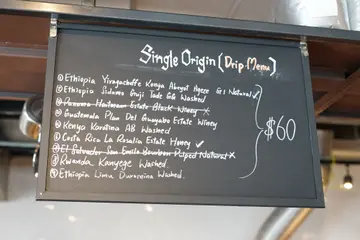 Single Origin (Drip Menu)
Ethiopia Yirgacheffe Konga Abegst Agere G1 Natural ✓
Ethiopia Sidamo Guji Tade GG Washed
Panama Hartman Estate Black Winey ×
Guatemala Plan Del Guayabo Estate Winey
Kenya Karatina AB Washed
Costa Rica La Rosalia Estate Honey ✓
El Salvador San Emilio Bourbon Pulped Natural ×
Rwanda Kanyege Washed.
Ethiopia Lima Duromina Washed.
$60